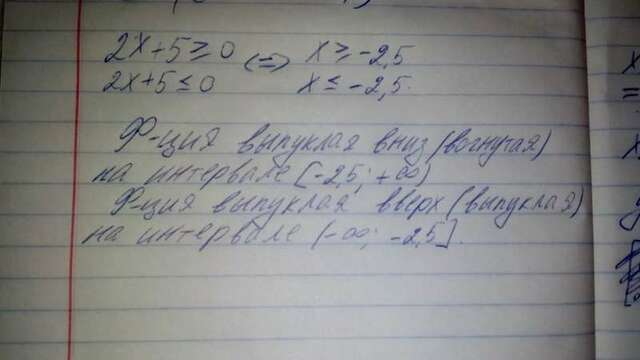 2x+5≥0 (=) x≥-2,5
2x+5≤0 x≤-2,5.
Ф-ция выпуклая вниз (вогнутая)
на интервале [-2,5; +∞)
Ф-ция выпуклая вверх (выпуклая)
на интервале (-∞; -2,5].
x
=
x
y